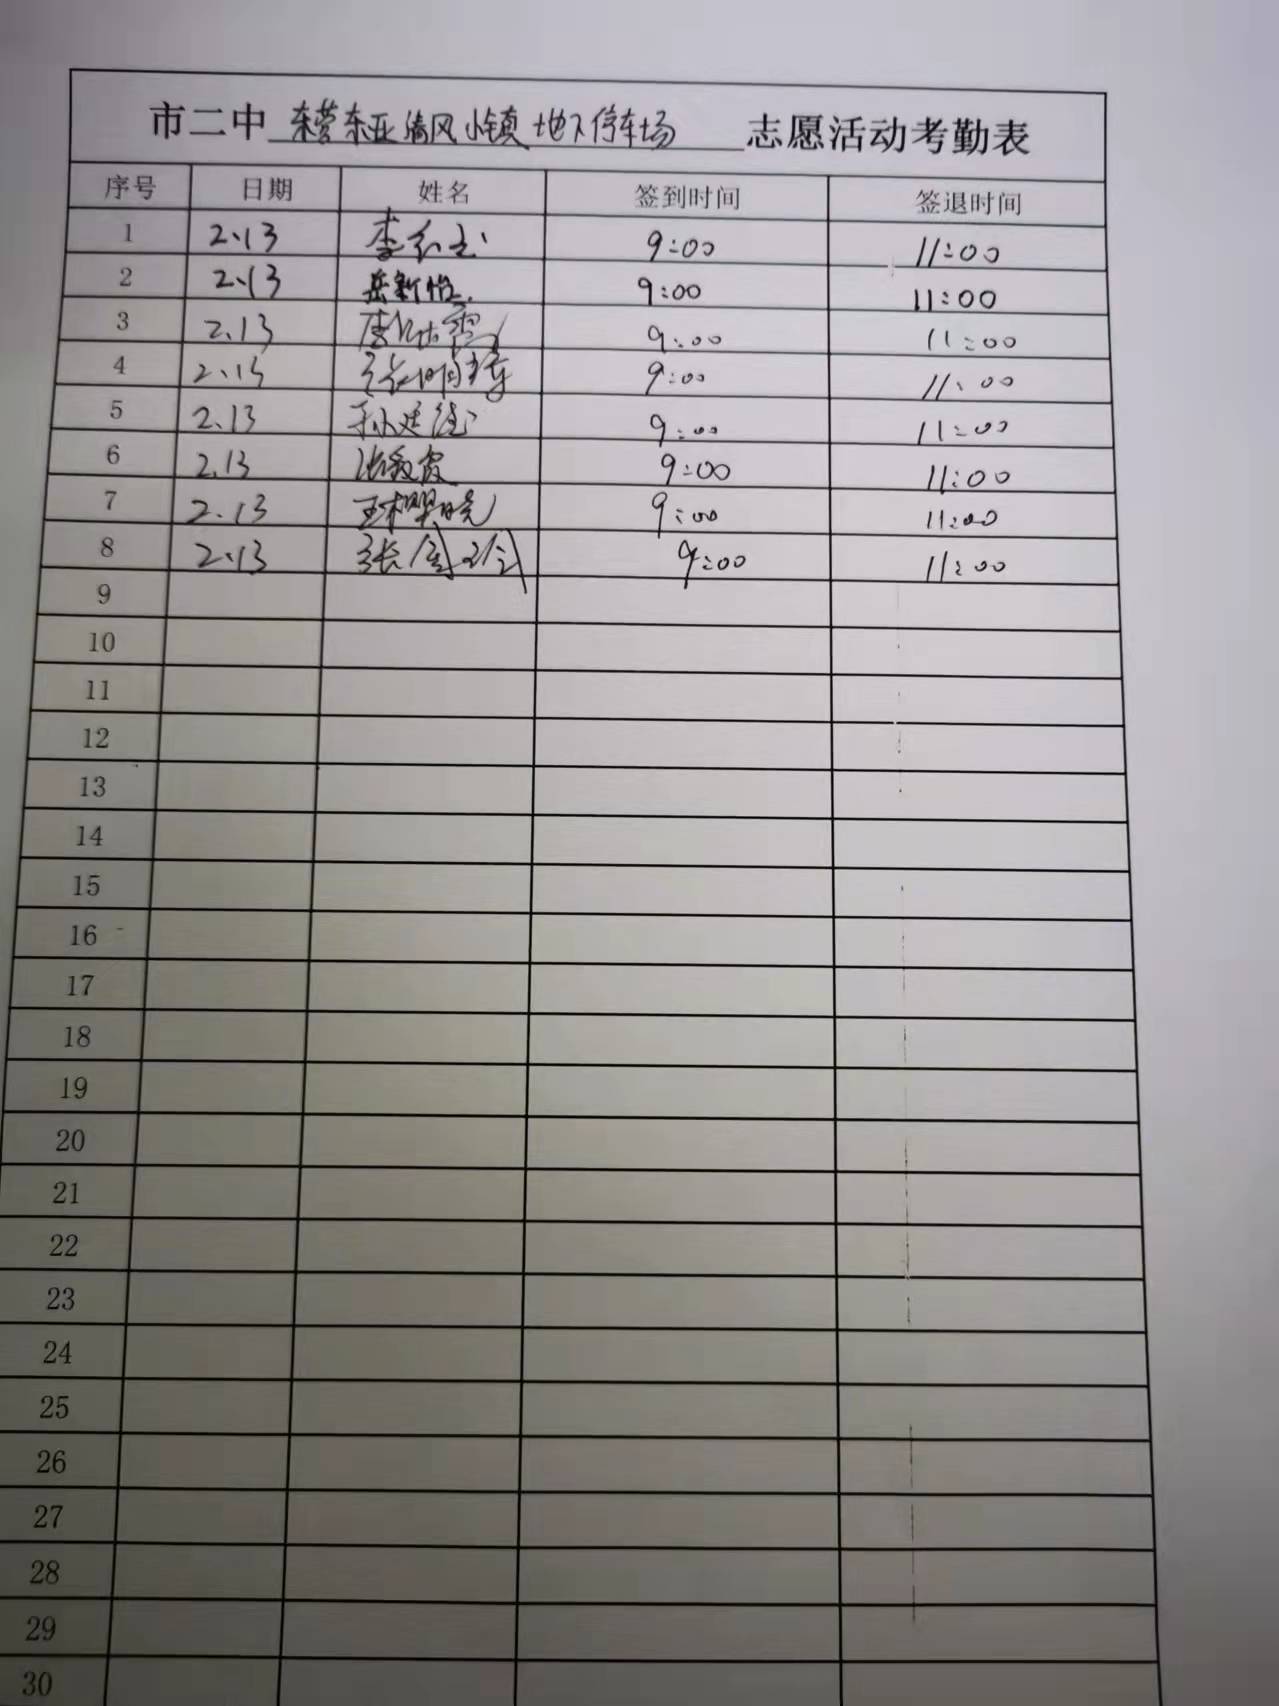 市二中 东营东亚清风小镇地下停车场 志愿活动考勤表
序号 日期 姓名 签到时间 签退时间
1 2.13 李 9:00 11:00
2 2.13 岳新怡 9:00 11:00
3 2.13 9:00 11:00
4 2.13 9:00 11:00
5 2.13 孙建 9:00 11:00
6 2.13 霞 9:00 11:00
7 2.13 王樱晓 9:00 11:00
8 2.13 张 9:00 11:00
9
10
11
12
13
14
15
16
17
18
19
20
21
22
23
24
25
26
27
28
29
30